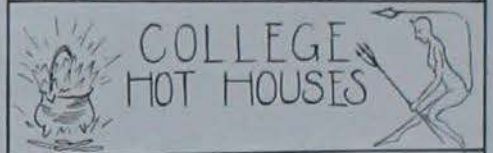 COLLEGE
HOT HOUSES